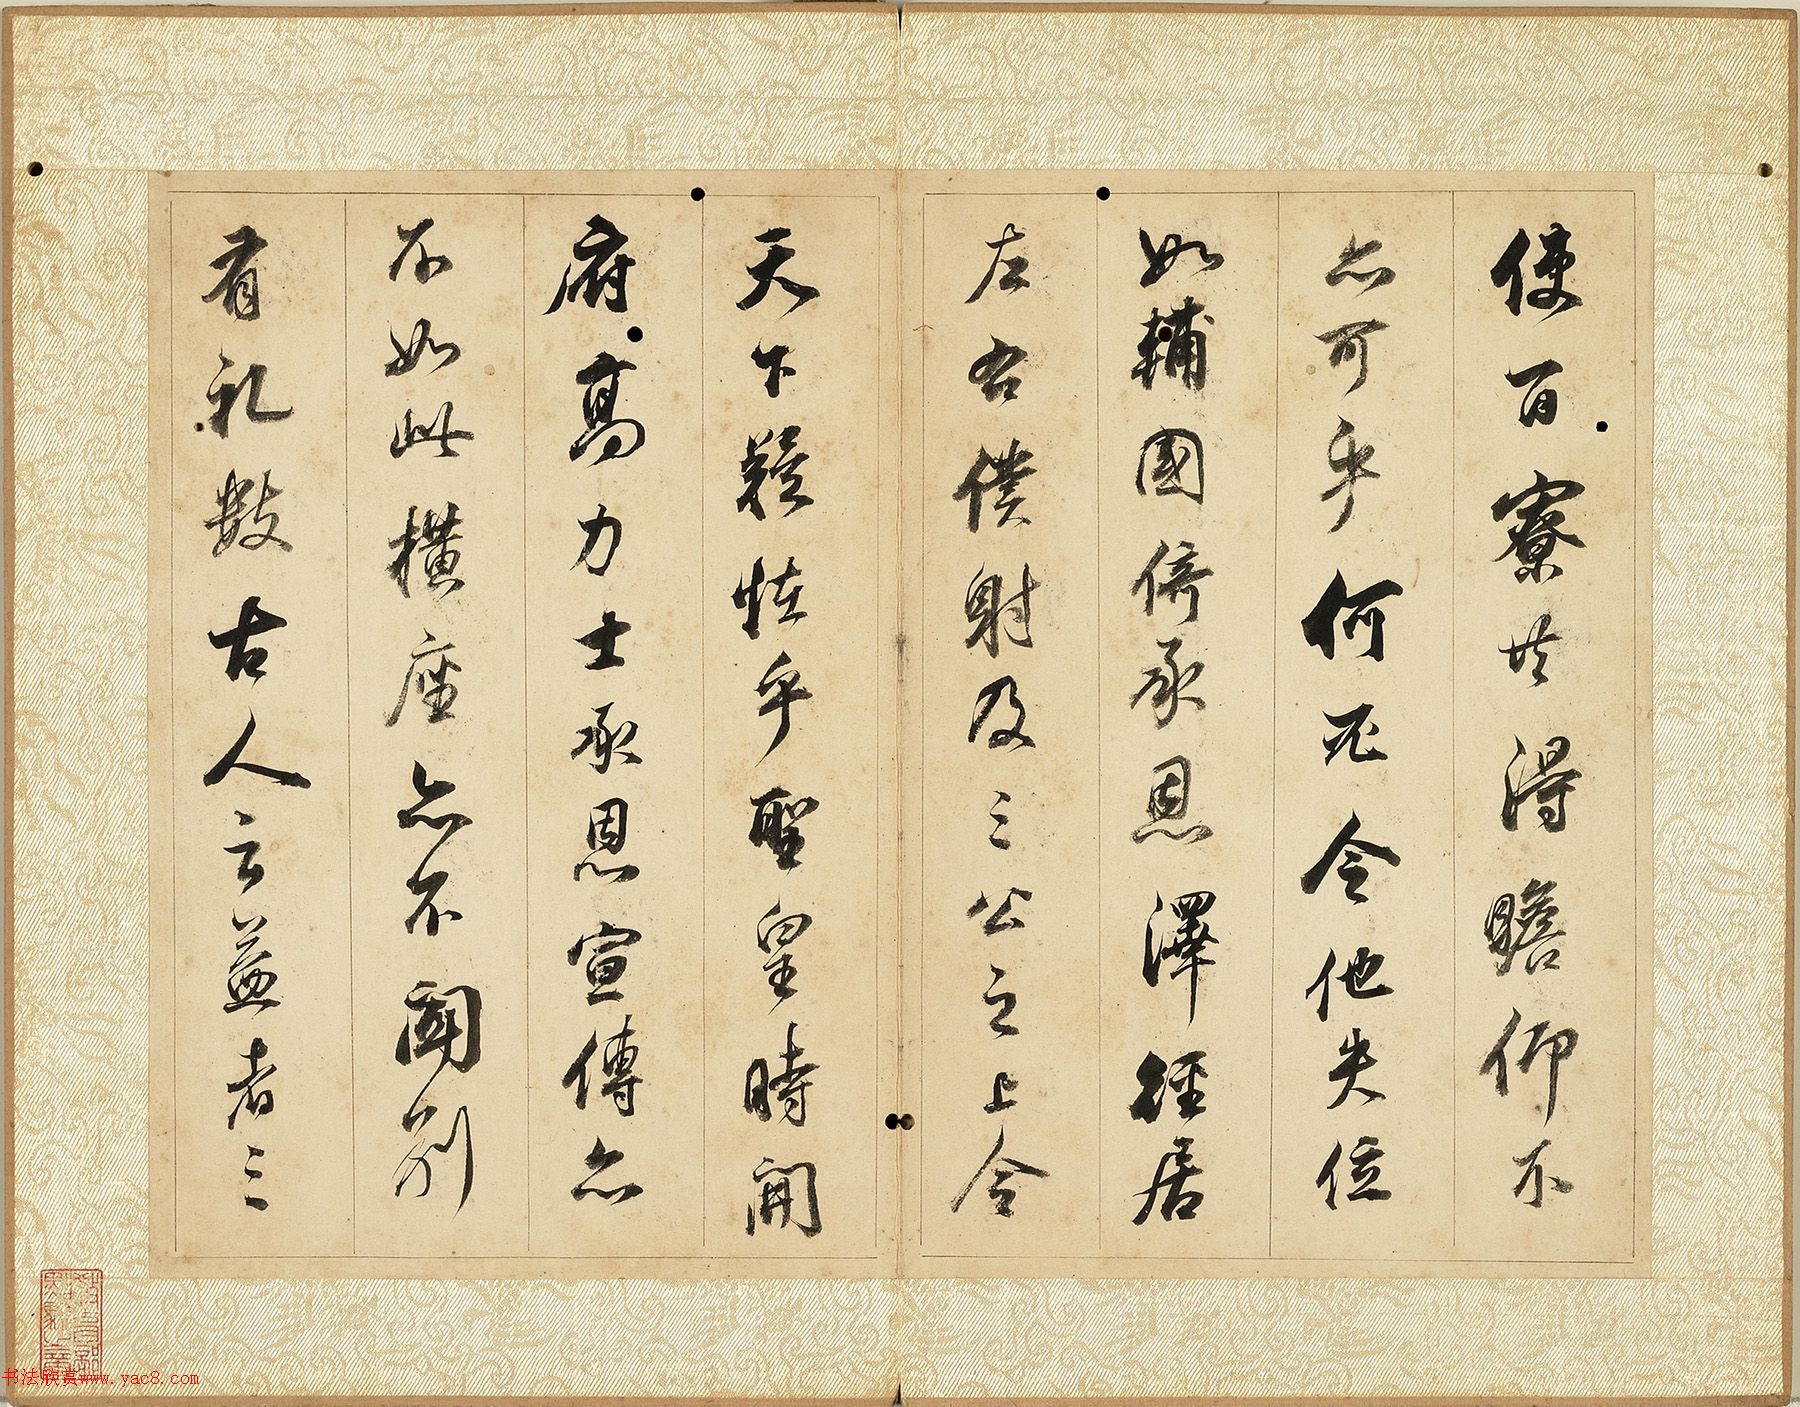 使百寮共得瞻仰不
亦可乎何必令他失位
如輔國倚承恩澤徑居
左右僕射及三公之上令
天下疑怪乎聖皇時開
府高力士承恩宣傳亦
不如此橫座亦不聞別
有礼數古人云益者三
书法欣赏www.yac8.com